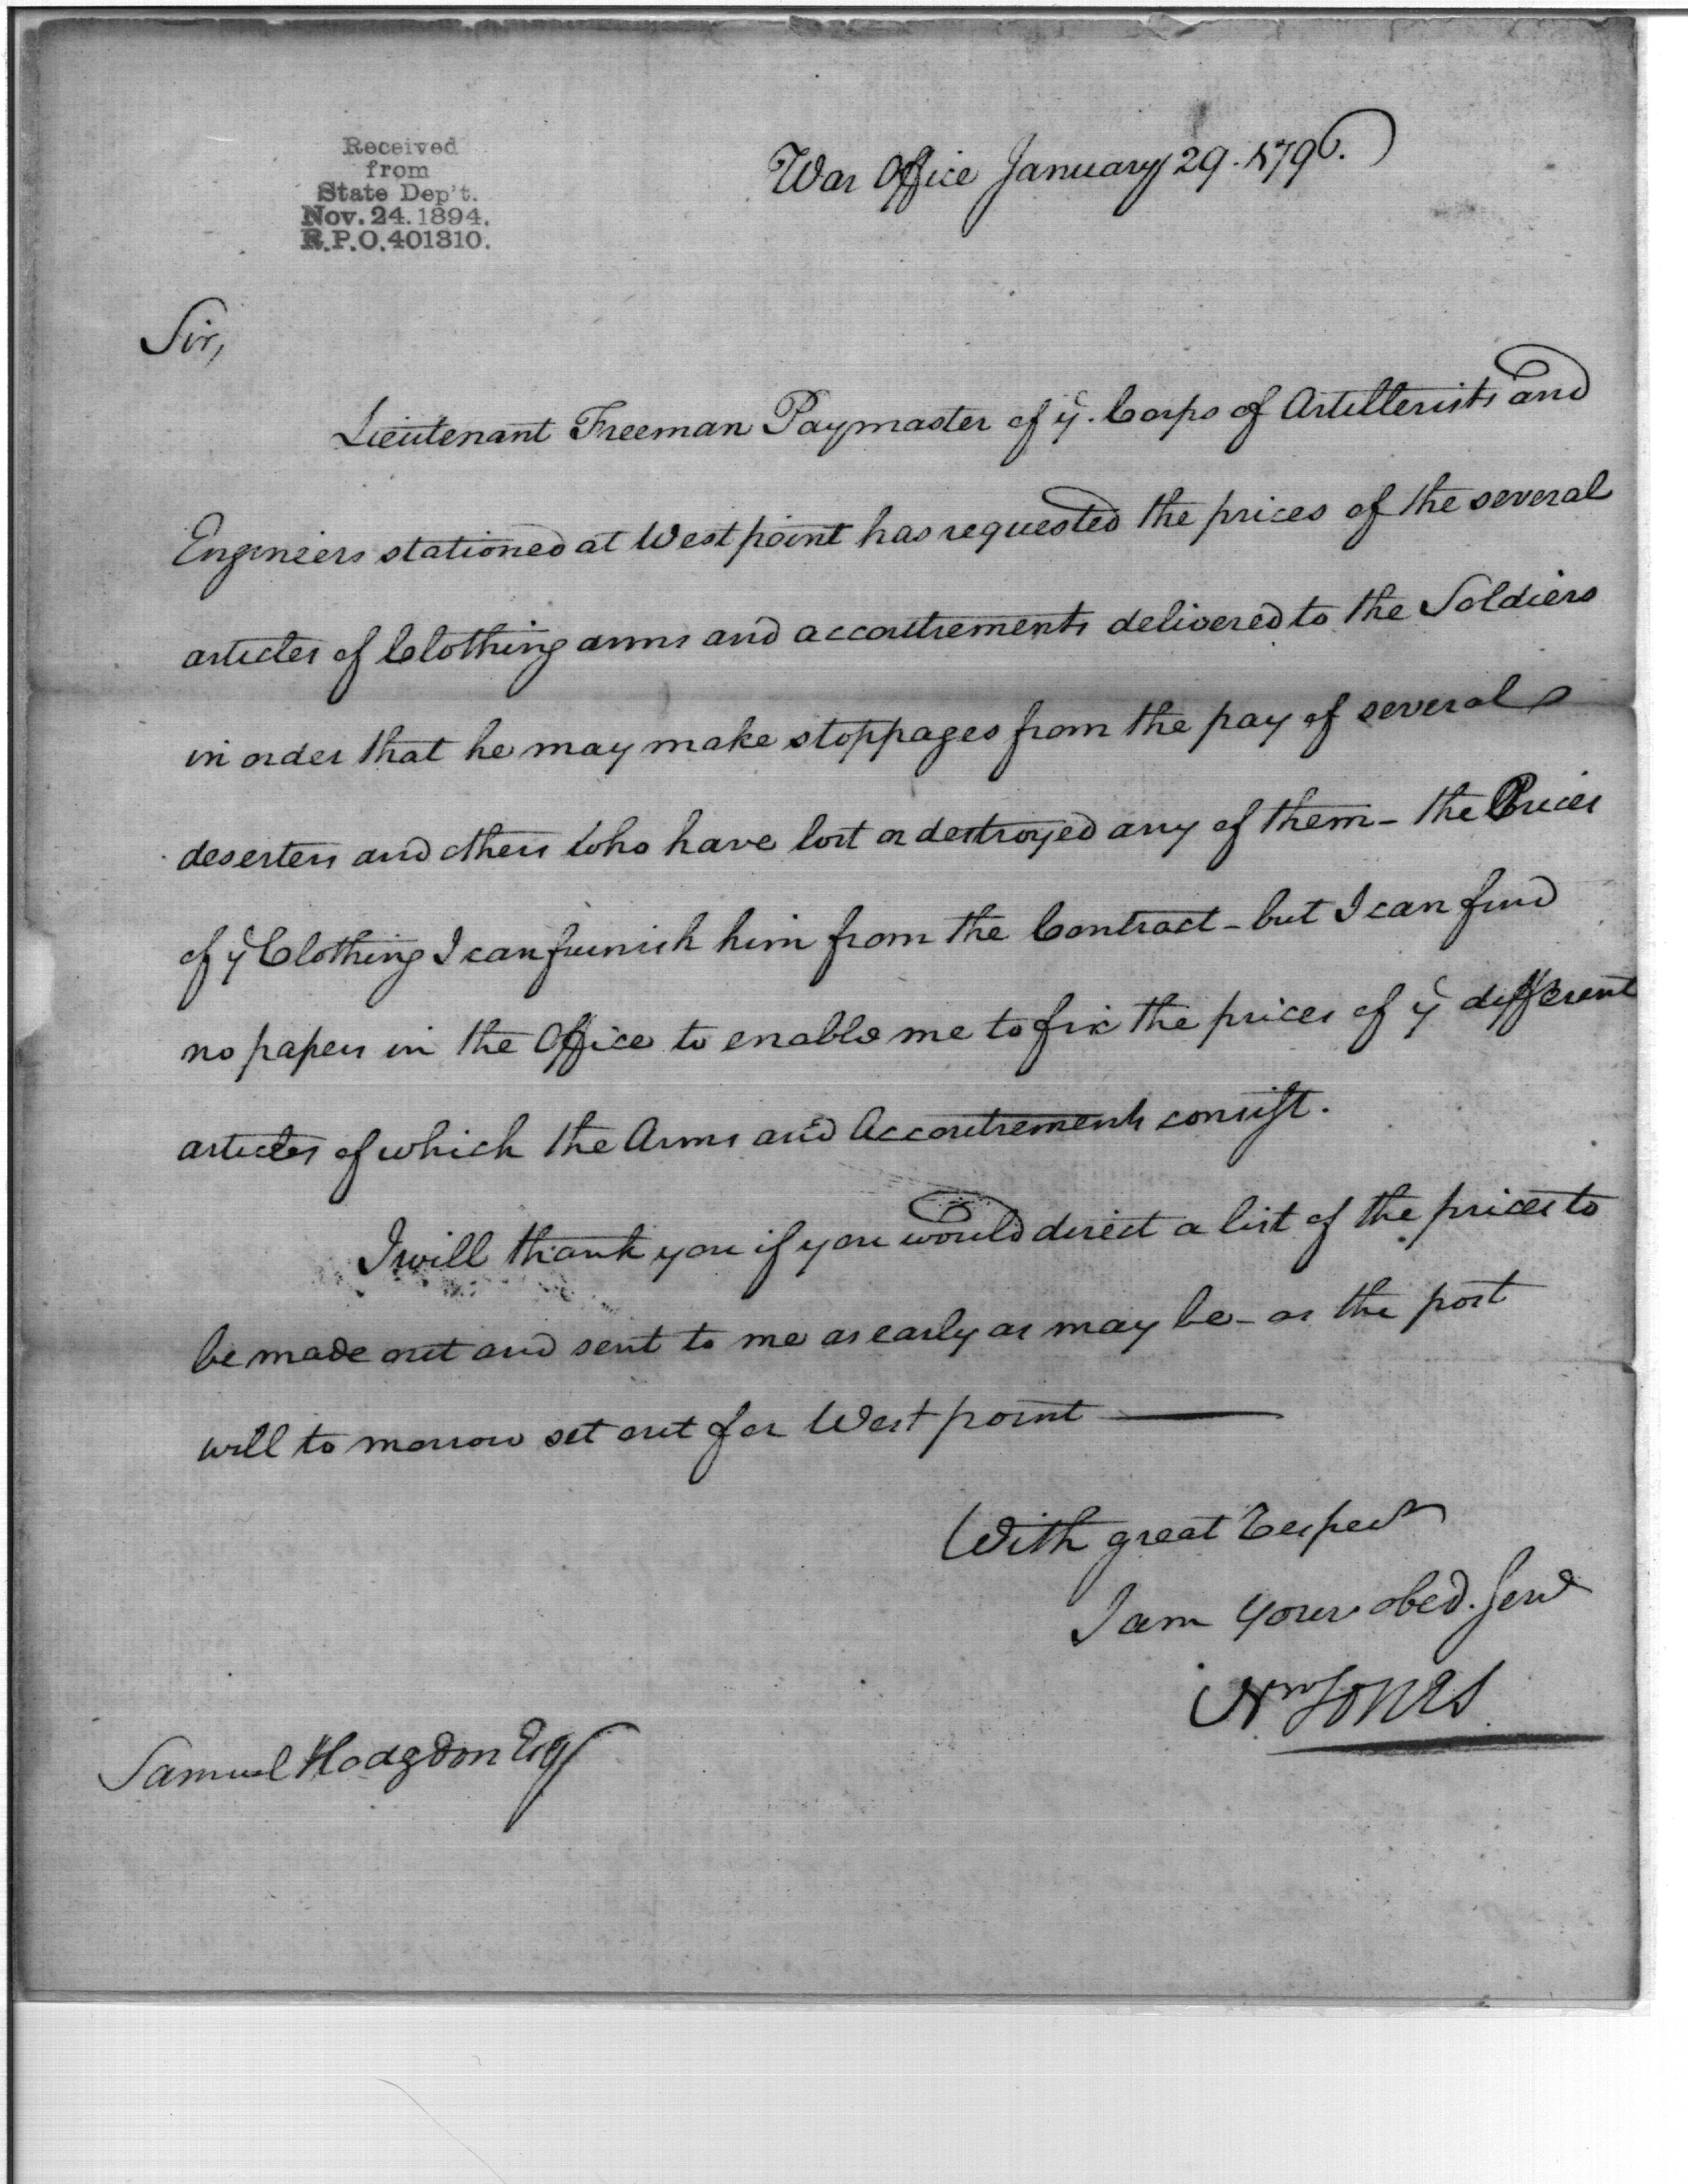 Received
from
State Dep't.
Nov. 24. 1894.
R.P.O. 401310.
War Office January 29. 1796.
Sir,
Lieutenant Freeman Paymaster of ye. Corps of Artillerists and
Engineers stationed at West point has requested the prices of the several
articles of Clothing arms and accoutrements delivered to the Soldiers
in order that he may make stoppages from the pay of several
deserters and others who have lost or destroyed any of them - the Prices
of ye Clothing I can furnish him from the Contract - but I can find
no papers in the Office to enable me to fix the prices of ye different
articles of which the Arms and Accoutrements consist.
I will thank you if you would direct a list of the prices to
be made out and sent to me as early as may be - as the post
will to morrow set out for West point
With great respect
I am your obed. Servt
Wm Jones
Samuel Hodgdon Esqr